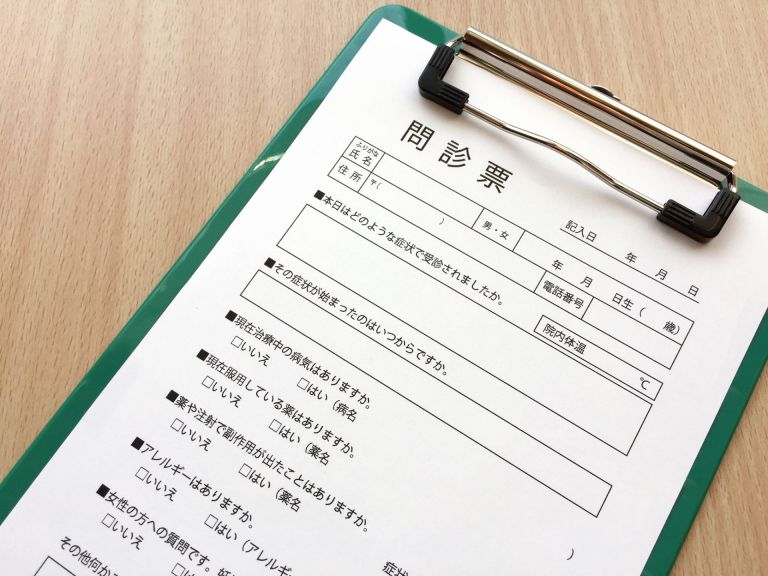 問診票
記入日 年 月 日
ふりがな
氏名
男・女
年 月 日生( 歳)
住所
〒(
)
電話番号
■本日はどのような症状で受診されましたか。
院内体温
℃
■その症状が始まったのはいつからですか。
■現在治療中の病気はありますか。
□いいえ □はい(病名
■現在服用している薬はありますか。
□いいえ □はい(薬名
■薬や注射で副作用が出たことはありますか。
□いいえ □はい(薬名
■アレルギーはありますか。
□いいえ □はい(アレルギー
症状
)
■女性の方への質問です。
□いいえ □は
その他何か